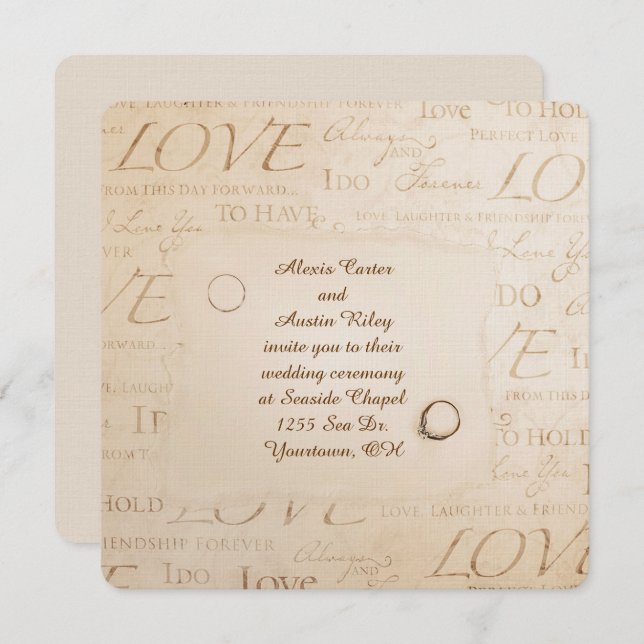 OVE, LAUGHTER & FRIENDSHIP FOREVER
Love
TO HOLD
LOVE
Always
AND
PERFECT LOVE
FROM THIS DAY FORWARD...
I DO
Forever
LO
I Love You
TO HAVE
LOVE, LAUGHTER & FRIENDSHIP FOREV
EVER
Alexis Carter
and
Austin Riley
invite you to their
wedding ceremony
at Seaside Chapel
1255 Sea Dr.
Yourtown, OH
DO
VE
VE
I D
FORWARD...
VE, LAUGH
FROM THIS DAY
I D
TO HOLD
FROM T
Love You
HOLD
LOVE
LOVE, LAUGHTER & FRIEND
IENDSHIP FOREVER
Always
AND
LOVE
E
I DO
Love
PERFECT LOVE